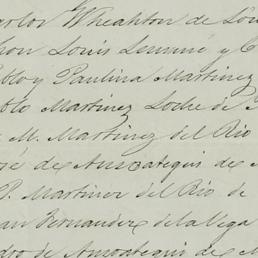 Wheahton de Lon
Louis Lemme y C
Pablo y Paulina Martinez
Pablo Martinez Loche de
M. Martinez del Rio
de Ansoategui de
P. Martinez del Rio de
Fernandez de la Vega
Pedro de Ansoategui de M